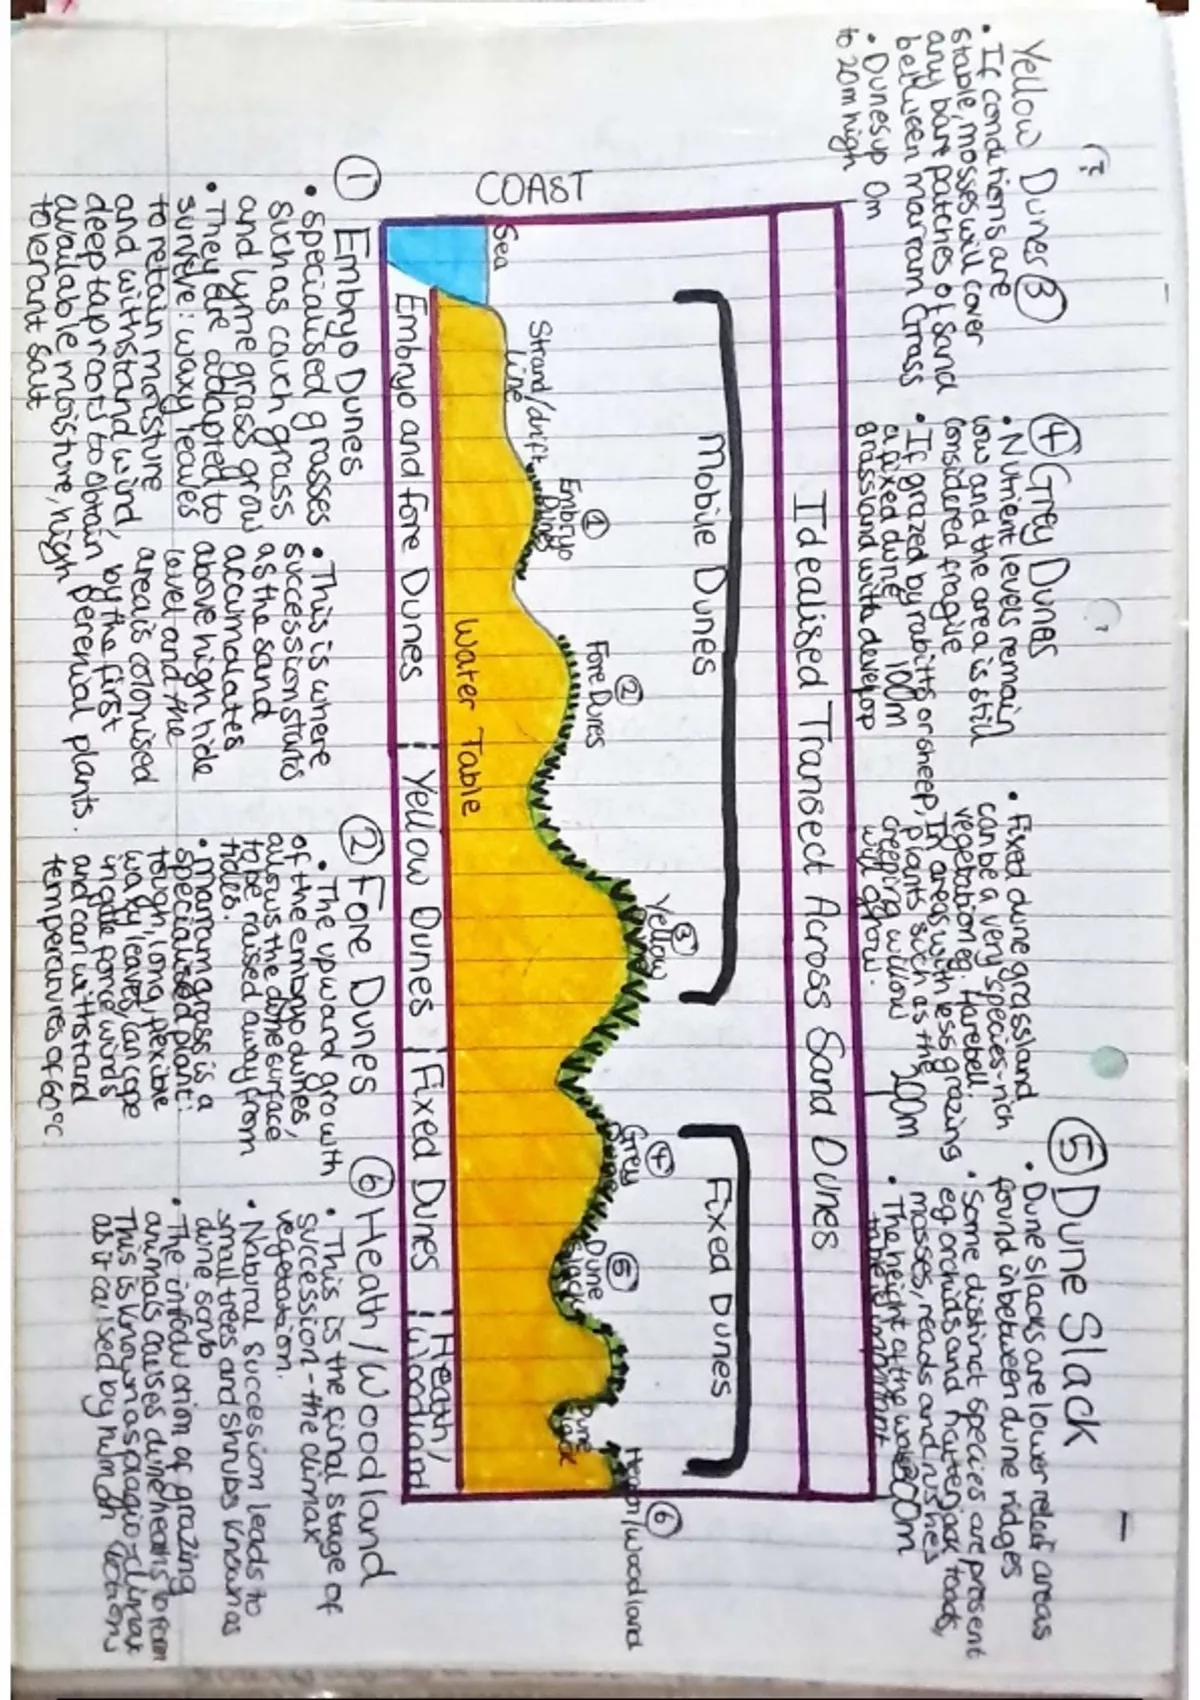 Yellow Dunes ③
• If conditions are
stable, mosses will cover
any bare patches of sand
between marram Grass
• Dunes up 0m
to 20m high
④ Grey Dunes
• Nutrient levels remain
low and the area is still
considered fragile
• If grazed by rabbits or sheep,
a fixed dune 100m
grassland with develop
• Fixed dune grassland
can be a very species-rich
vegetation eg. Harebell.
In areas with less grazing
plants such as the
creeping willow 200m
will grow.
⑤ Dune Slack
• Dune slacks are lower relief areas
found inbetween dune ridges
• Some distinct species are present
eg. orchids and natterjack toads,
mosses, reads and rushes
• The height of the water 300m
important
Idealised Transect Across Sand Dunes
Mobile Dunes
Fixed Dunes
COAST
Sea
Strand/drift
line
①
Embryo
Dunes
②
Fore Dunes
③
Yellow
④
Grey
⑤
Dune
Slack
Dune
Slack
⑥
Heath/Woodland
Water Table
Embryo and fore Dunes
Yellow Dunes
Fixed Dunes
Heath/
Woodland
① Embryo Dunes
• Specialised grasses
such as couch grass
and lyme grass grow
• They are adapted to
survive: waxy leaves
to retain moisture
and withstand wind,
deep tap roots to obtain
available moisture, high
tolerant salt
• This is where
succession starts
as the sand
accumalates
above high tide
level and the
area is colonised
by the first
perenial plants.
② Fore Dunes
• The upward growth
of the embryo dunes,
allows the dune surface
to be raised away from
tides.
• Marram grass is a
specialised plant:
tough, long, flexible
waxy leaves, can cope
in gale force winds
and can withstand
temperatures of 60°C
⑥ Heath/Woodland
• This is the final stage of
succession - the climax
vegetation.
• Natural succesion leads to
small trees and shrubs known as
dune scrub
• The introduction of grazing
animals causes dune heaths to form
This is known as plagio-climax
as it caused by human actions